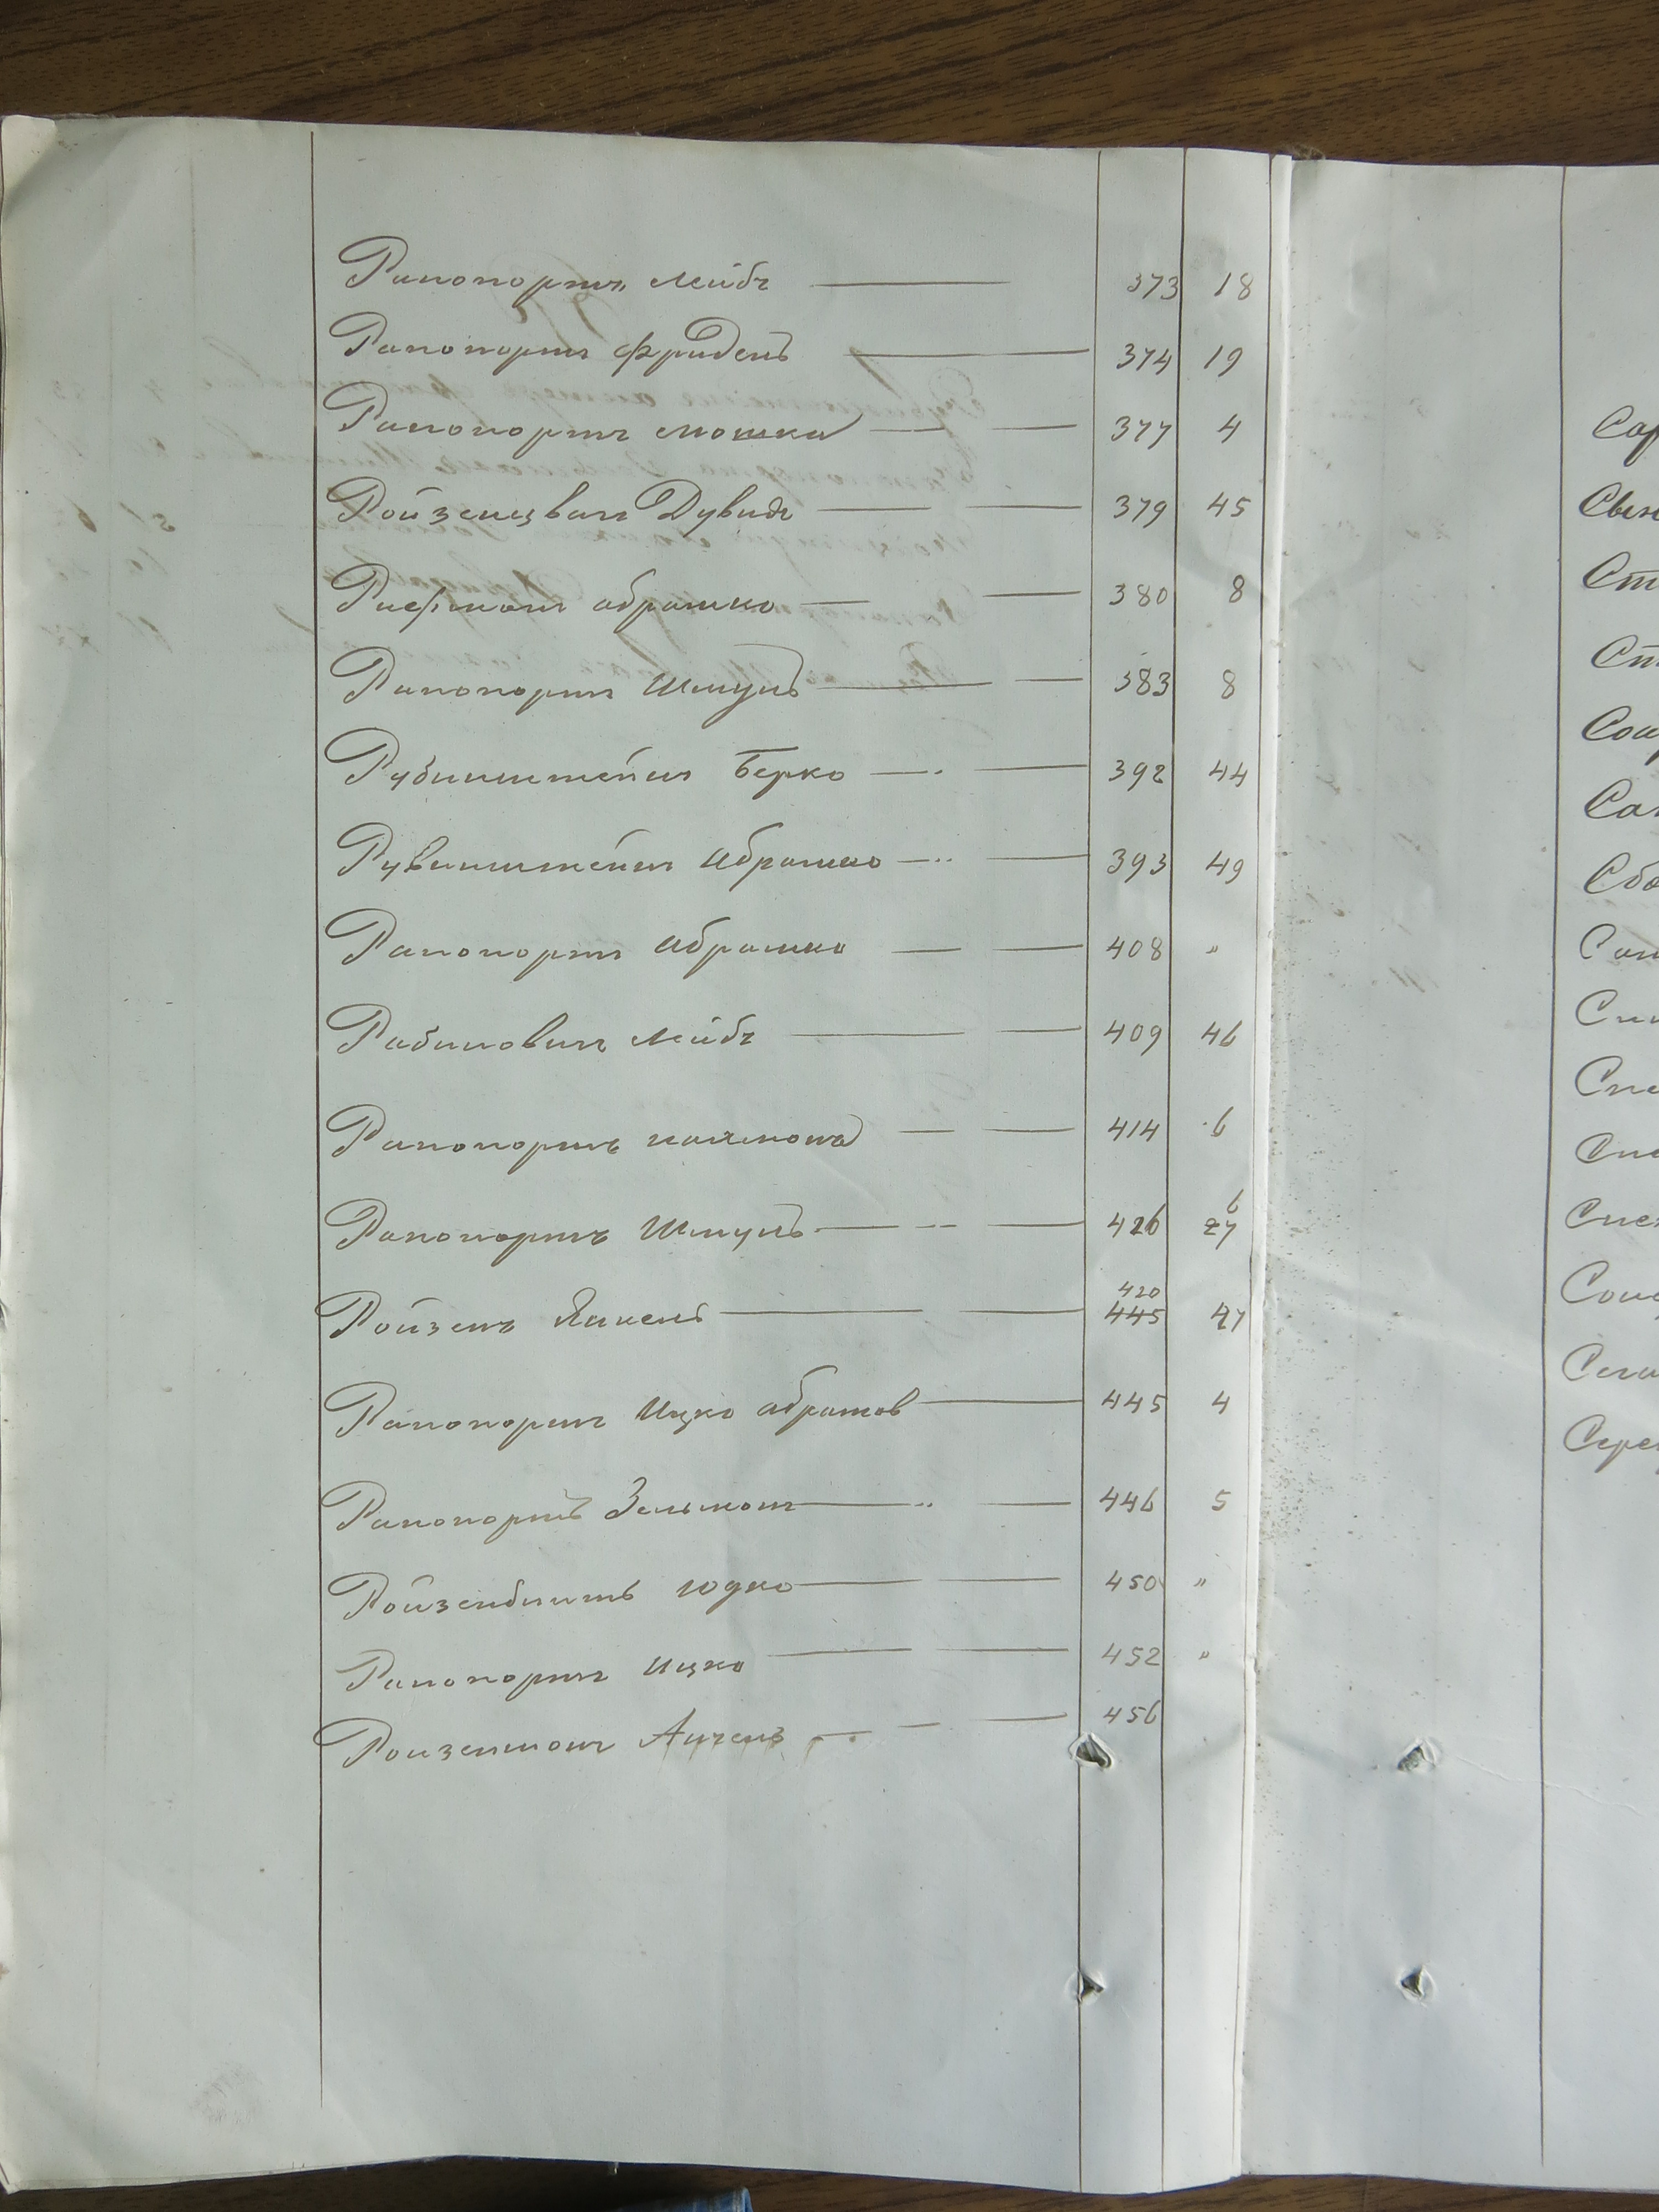 Рапопортъ Лейбъ 373 18
Рапопортъ Фридель 374 19
Рапопортъ Мошка 377 4
Ройзенцвайг Дувидъ 379 45
абрамко 380 8
Рапопортъ Шмуль 383 8
Рубинштейнъ Берко 392 44
Рувинштейнъ Абрамко 393 49
Рапопортъ Абрамко 408 "
Рабиновичъ Лейбъ 409 46
Рапопортъ 414 6
Рапопортъ Шмуль 426 6 27
Ройзенъ Янкель 420 445 47
Рапопортъ Ицко абрамов 445 4
Рапопортъ Зельман 446 5
Ройзенблитъ Юдко 450 "
Рапопортъ Ицко 452 "
Ройзенман Анчель 456
Сар
Ст
Сп
Соц
Сбо
Сни
Сог
Сере